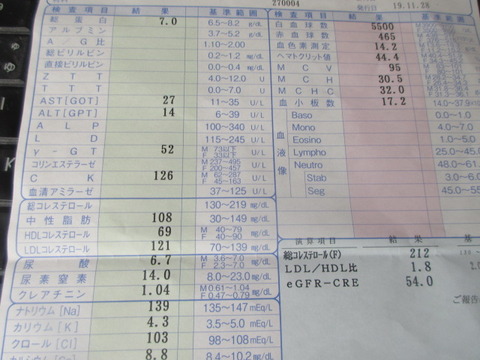 270004
発行日 19.11.28
検査項目 結果 基準範囲
総蛋白 7.0 6.5~8.2 g/dL
アルブミン 3.7~5.2 g/dL
A/G比 1.10~2.00
総ビリルビン 0.2~1.2 mg/dL
直接ビリルビン 0.0~0.4 mg/dL
ZTT 4.0~12.0 U
TTT 0.0~7.0 U
AST[GOT] 27 11~35 U/L
ALT[GPT] 14 6~39 U/L
ALP 100~340 U/L
LD 115~245 U/L
γ-GT 52 M 73以下 F 33以下 U/L
コリンエステラーゼ M 237~495 F 200~457 U/L
CK 126 M 62~287 F 45~163 U/L
血清アミラーゼ 37~125 U/L
総コレステロール 130~219 mg/dL
中性脂肪 108 30~149 mg/dL
HDLコレステロール 69 M 40~79 F 40~90 mg/dL
LDLコレステロール 121 70~139 mg/dL
尿酸 6.7 M 3.6~7.0 F 2.3~7.0 mg/dL
尿素窒素 14.0 8.0~23.0 mg/dL
クレアチニン 1.04 M 0.61~1.04 F 0.47~0.79 mg/dL
ナトリウム[Na] 139 135~147 mEq/L
カリウム[K] 4.3 3.5~5.0 mEq/L
クロール[Cl] 103 98~108 mEq/L
8.8 8.4~10.2 mg/dL
検査項目 結果 基準範囲
白血球数 5500
赤血球数 465
血色素測定 14.2
ヘマトクリット値 44.4
MCV 95
MCH 30.5
MCHC 32.0
血小板数 17.2 14.0~37.9
血液像
Baso 0.0
Mono 4.0~7.0
Eosino 1.0~5.0
Lympho 25.0~45.
Neutro 48.0~61.
Stab 3.0~6.0
Seg 45.0~55.
演算項目 結果
総コレステロール(F) 212
LDL/HDL比 1.8
eGFR-CRE 54.0
ご報告